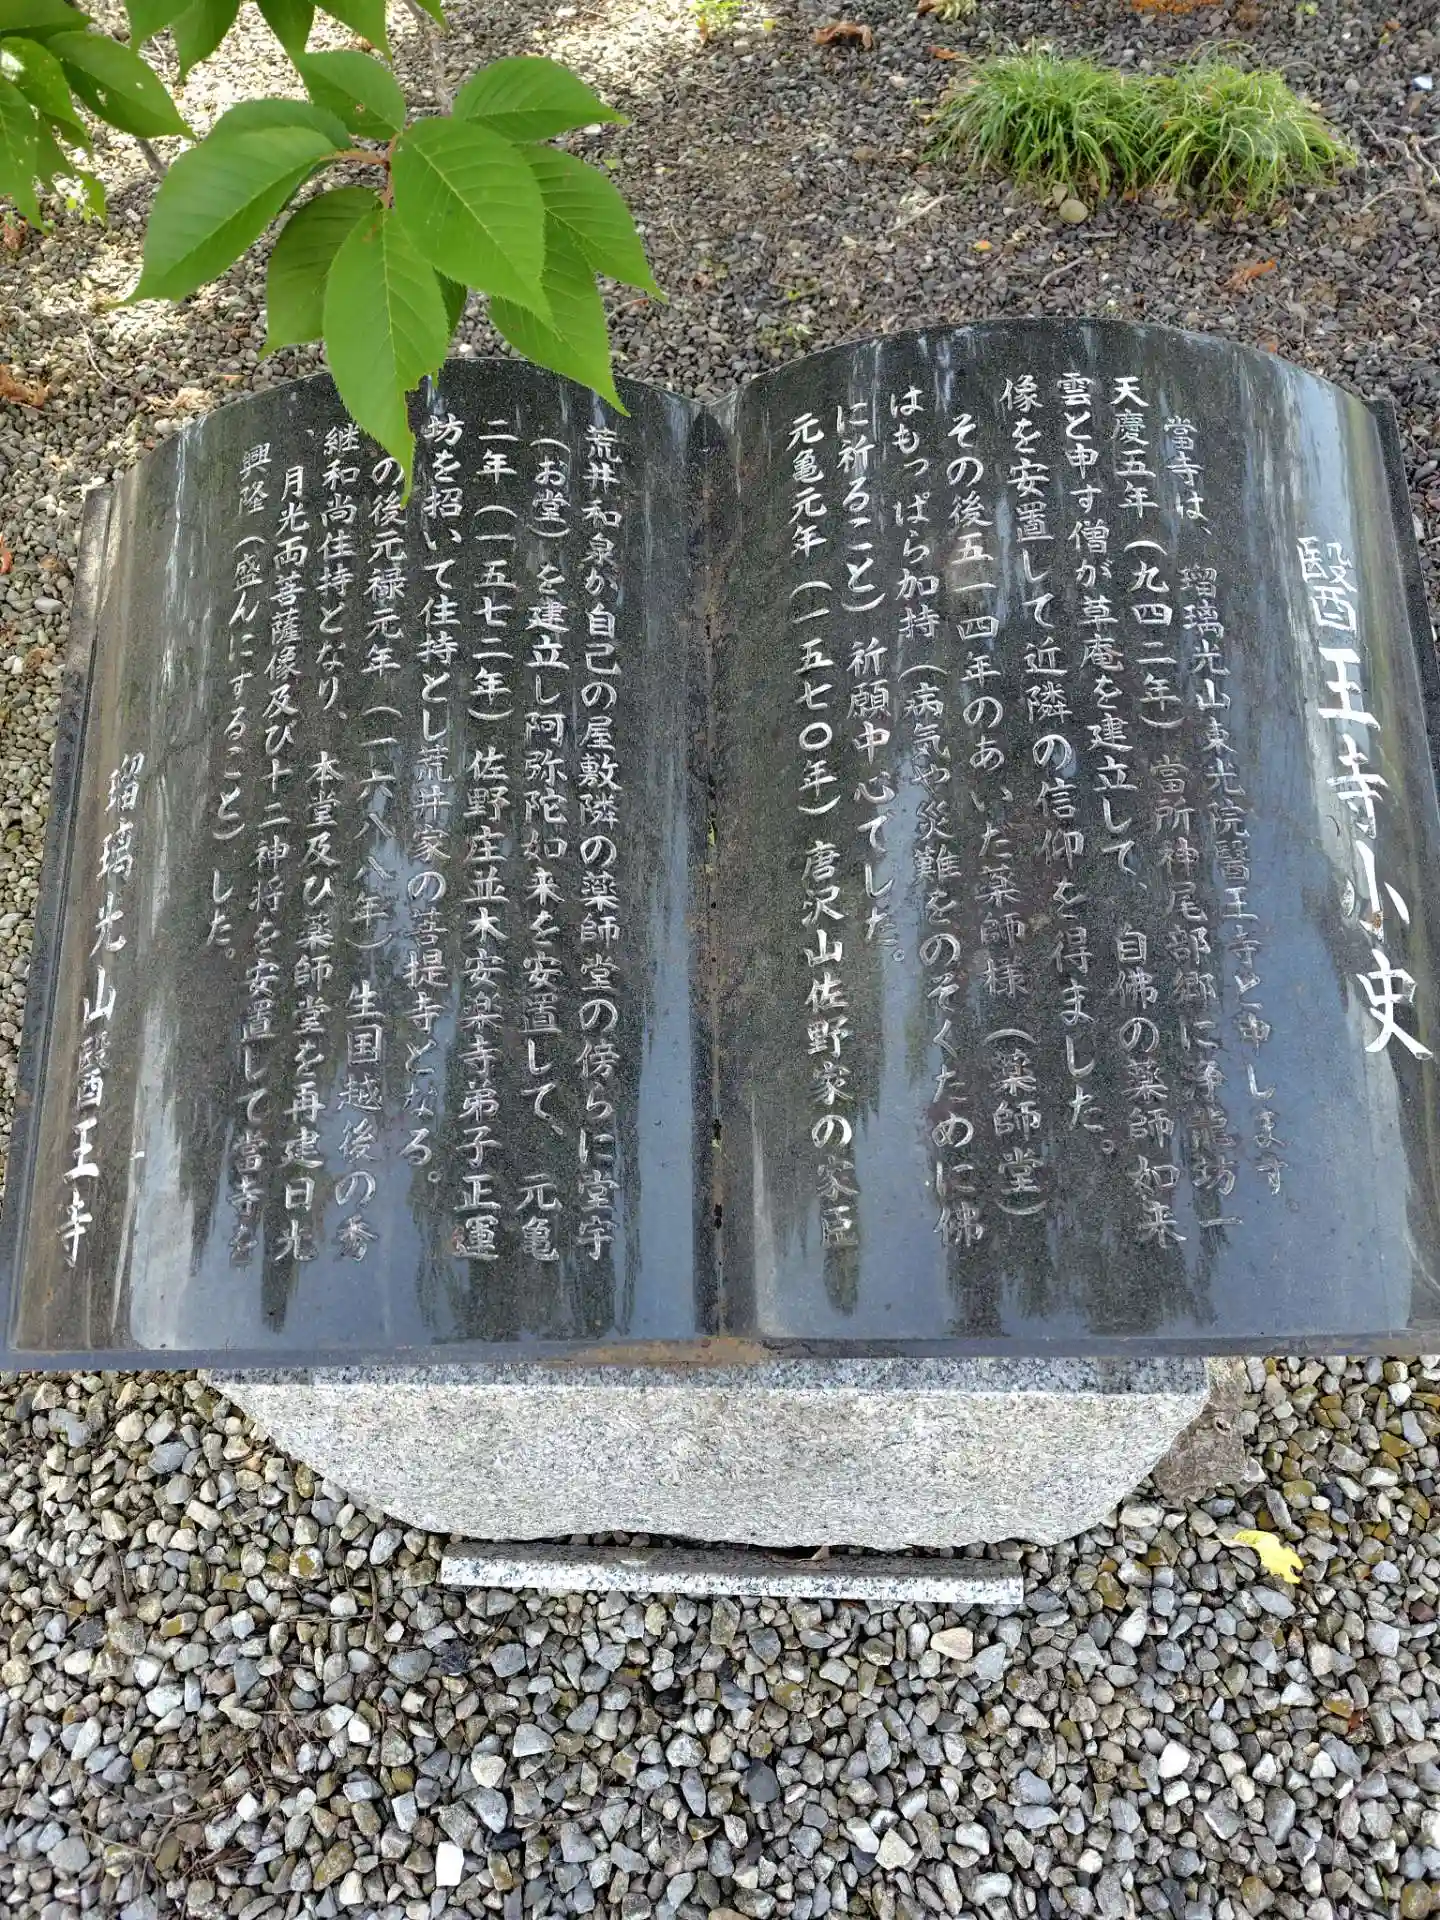 醫王寺小史
當寺は、瑠璃光山東光院醫王寺と申します
天慶五年（九四二年）當所神尾部郷に浄龍坊一
雲と申す僧が草庵を建立して、自佛の薬師如来
像を安置して近隣の信仰を得ました。
その後五一四年のあいた薬師様（薬師堂）
はもっぱら加持（病気や災難をのぞくために佛
に祈ること）祈願中心でした。
元亀元年（一五七〇年）唐沢山佐野家の家臣
荒井和泉が自己の屋敷隣の薬師堂の傍らに堂宇
（お堂）を建立し阿弥陀如来を安置して、元亀
二年（一五七二年）佐野庄並木安楽寺弟子正運
坊を招いて住持とし荒井家の菩提寺となる。
の後元禄元年（一六八八年）生国越後の秀
継和尚住持となり、本堂及ひ薬師堂を再建日光
月光両菩薩像及び十二神将を安置して當寺を
興隆（盛んにすること）した。
瑠璃光山醫王寺